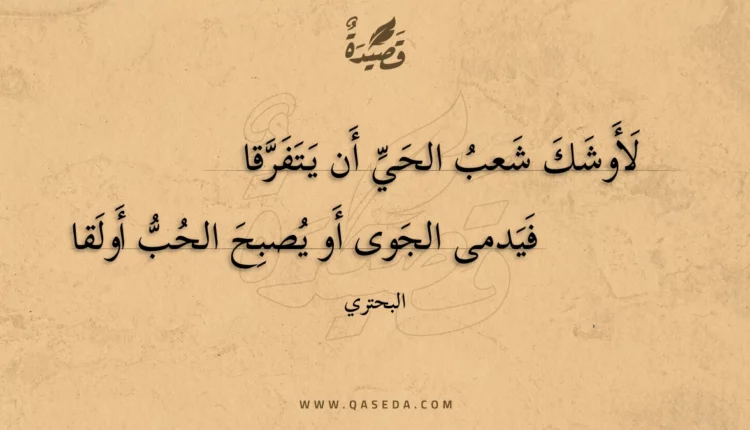 قَصِيْدَةٌ
لَأَوشَكَ شَعبُ الحَيِّ أَن يَتَفَرَّقا
فَيَدمى الجَوى أَو يُصبِحَ الحُبُّ أَولَقا
البحتري
WWW.QASEDA.COM